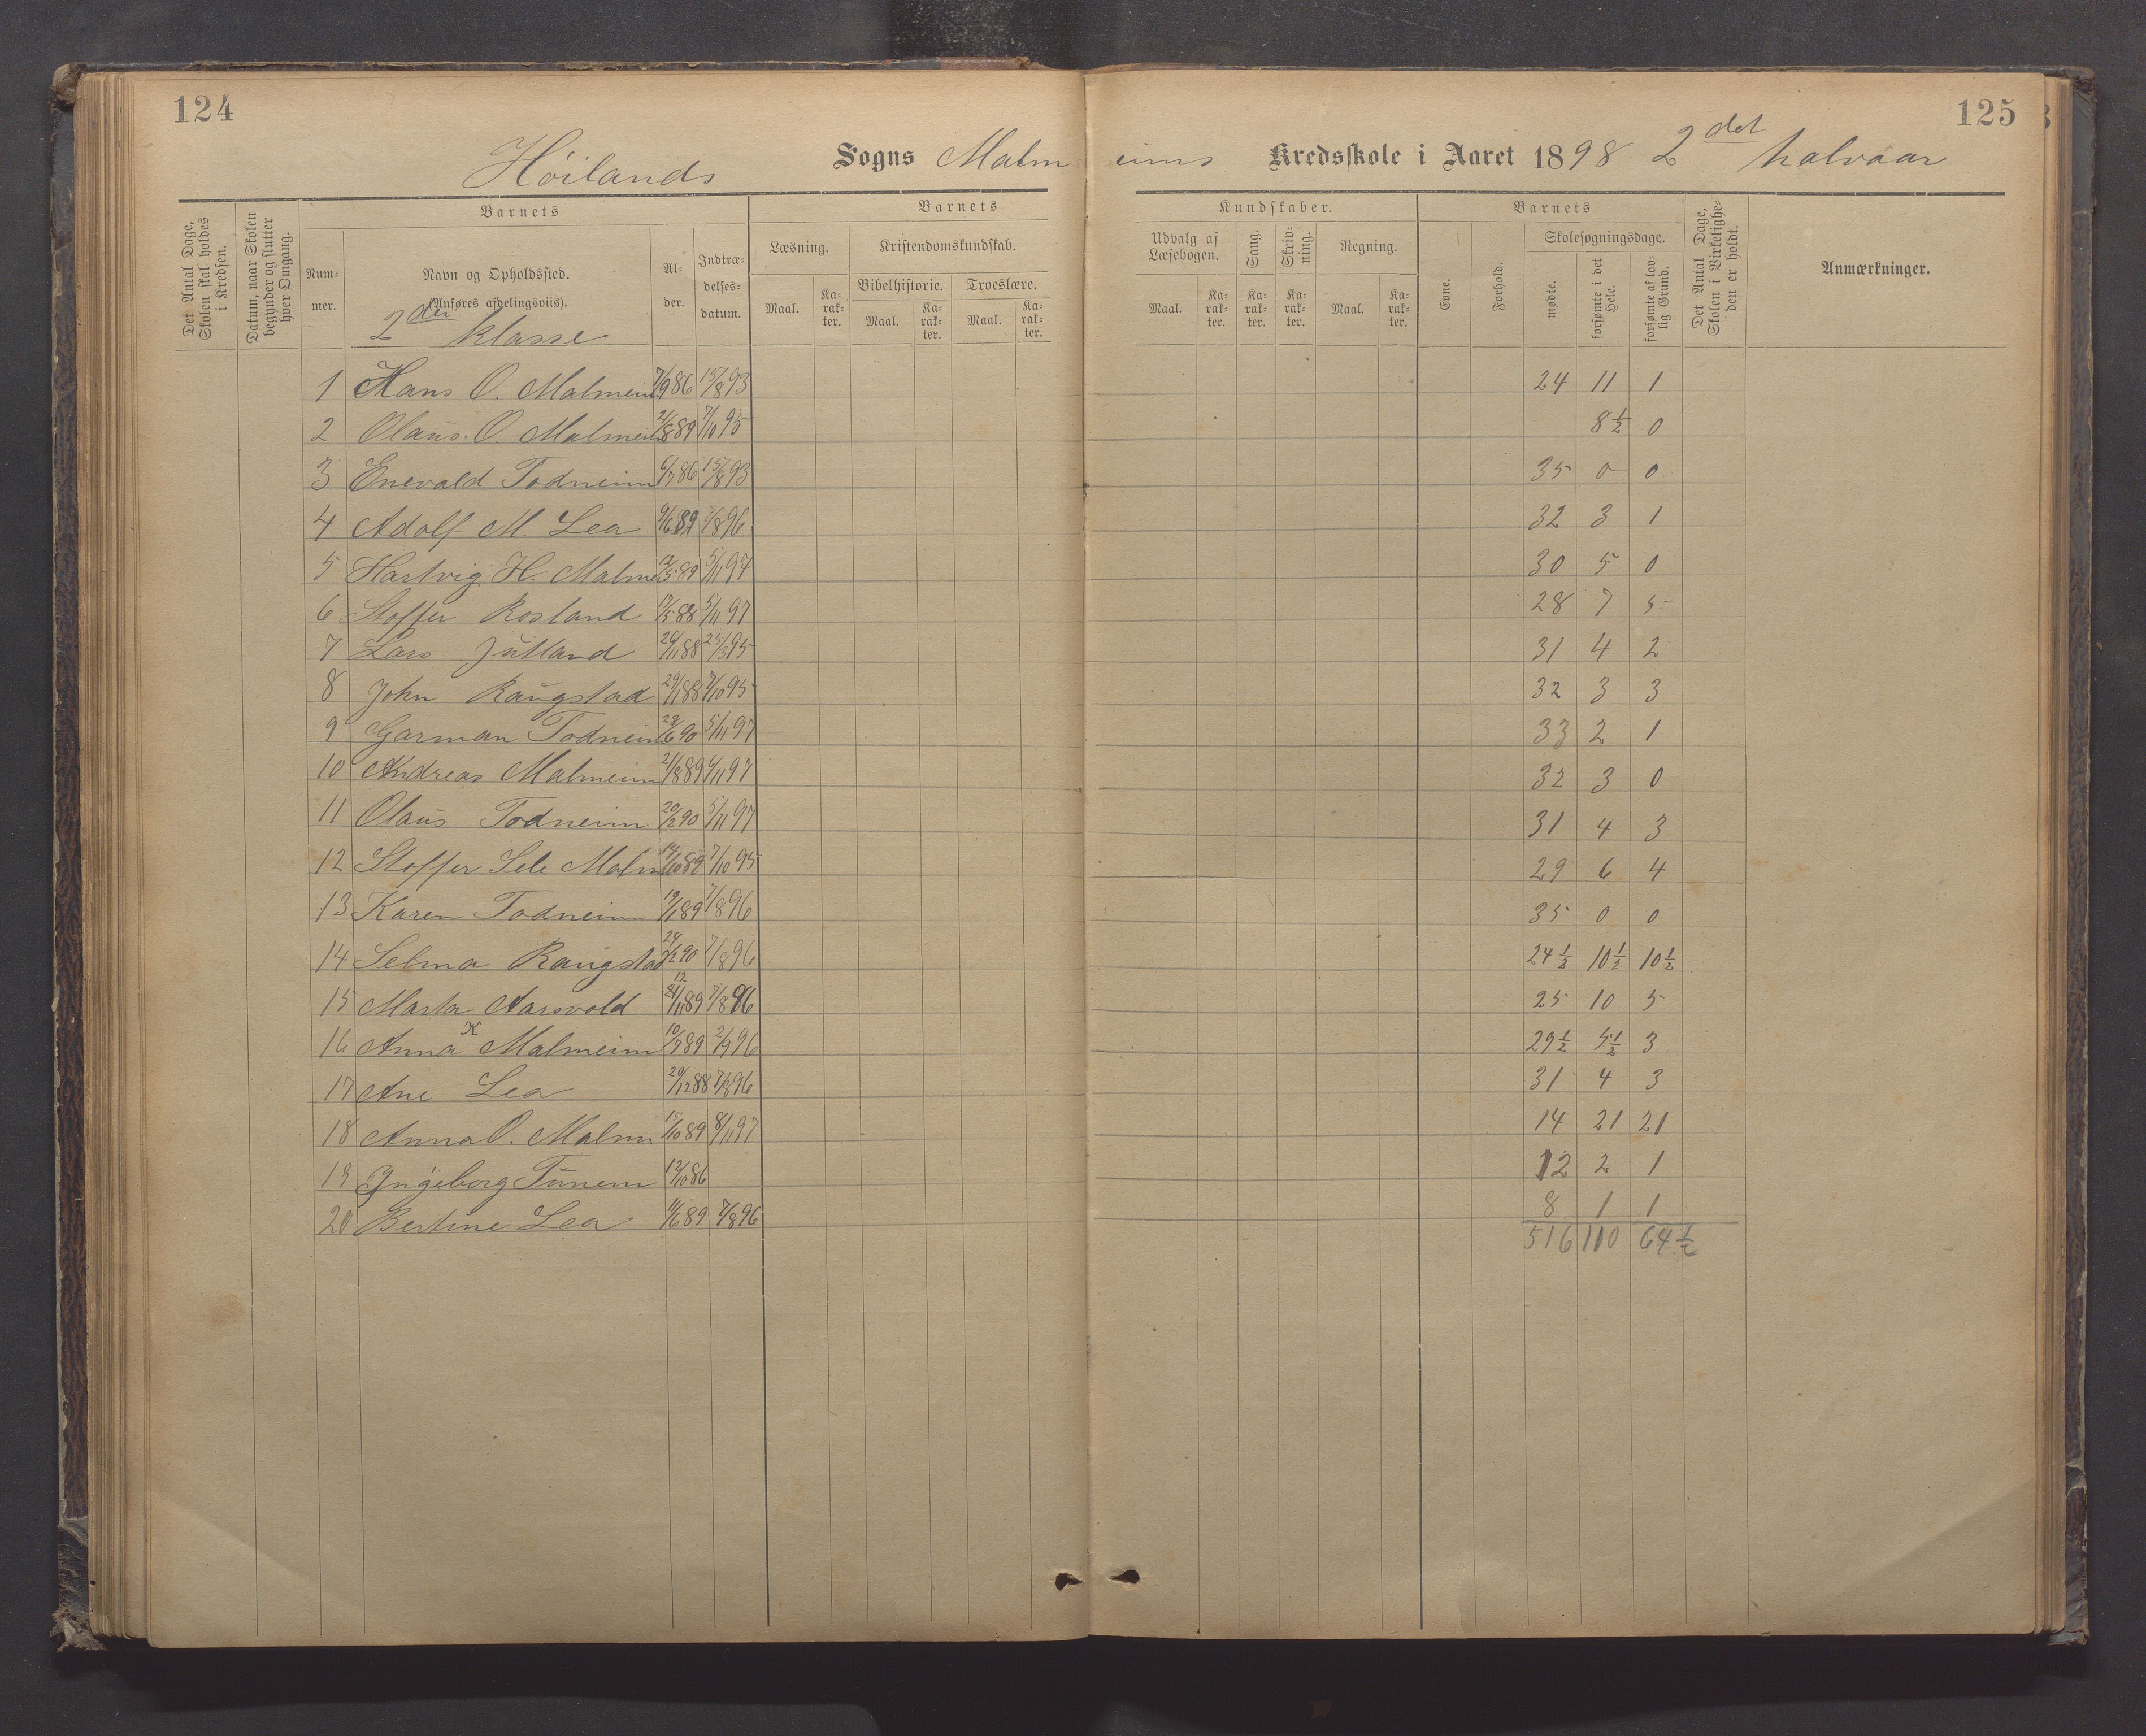 124
125
Høilands Sogns Malmeims Kredsskole i Aaret 1898 2det halvaar
Det Antal Dage, Skolen skal holdes i Kredsen.
Datum, naar Skolen begynder og slutter hver Omgang.
Barnets
Nummer.
Navn og Opholdssted.
(Anføres afdelingsviis).
Alder.
Indtrædelsesdatum.
Barnets
Læsning.
Maal.
Karakter.
Kristendomskundskab.
Bibelhistorie.
Maal.
Karakter.
Troeslære.
Maal.
Karakter.
Kundskaber.
Udvalg af Læsebogen.
Maal.
Karakter.
Sang.
Karakter.
Skrivning.
Karakter.
Regning.
Maal.
Karakter.
Barnets
Evne.
Forhold.
Skolesøgningsdage.
mødte.
forsømte i det Hele.
forsømte af lovlig Grund.
Det Antal Dage, Skolen i Virkeligheden er holdt.
Anmærkninger.
2den klasse
1 Hans O. Malmeim 7/9 86 15/8 93 24 11 1
2 Olaus O. Malmeim 2/8 89 7/10 95 8½ 0
3 Enevald Todneim 6/7 86 15/8 93 35 0 0
4 Adolf M. Lea 9/6 89 7/8 96 32 3 1
5 Hartvig H. Malmei 12/5 89 5/11 97 30 5 0
6 Stoffer Rosland 17/5 88 5/11 97 28 7 5
7 Lars Jütland 26/11 88 25/3 95 31 4 2
8 John Raugstad 29/1 88 7/10 95 32 3 3
9 Garman Todneim 28/6 90 5/11 97 33 2 1
10 Andreas Malmeim 21/8 89 4/11 97 32 3 0
11 Olaus Todneim 20/2 90 5/11 97 31 4 3
12 Stoffer Sele Malm 14/10 89 7/10 95 29 6 4
13 Karen Todneim 19/1 89 7/8 96 35 0 0
14 Selma Raugstad 24/2 90 7/8 96 24½ 10½ 10½
15 Marta Aarsvold 12 /11 89 7/8 96 25 10 5
16 Anna K Malmeim 10/7 89 2/9 96 29½ 5½ 3
17 Ane Lea 20/12 88 7/8 96 31 4 3
18 Anna O. Malm 15/10 89 8/11 97 14 21 21
19 Ingeborg Tunem 12/10 86 12 2 1
20 Bertine Lea 11/6 89 7/8 96 8 1 1
516 110 64½